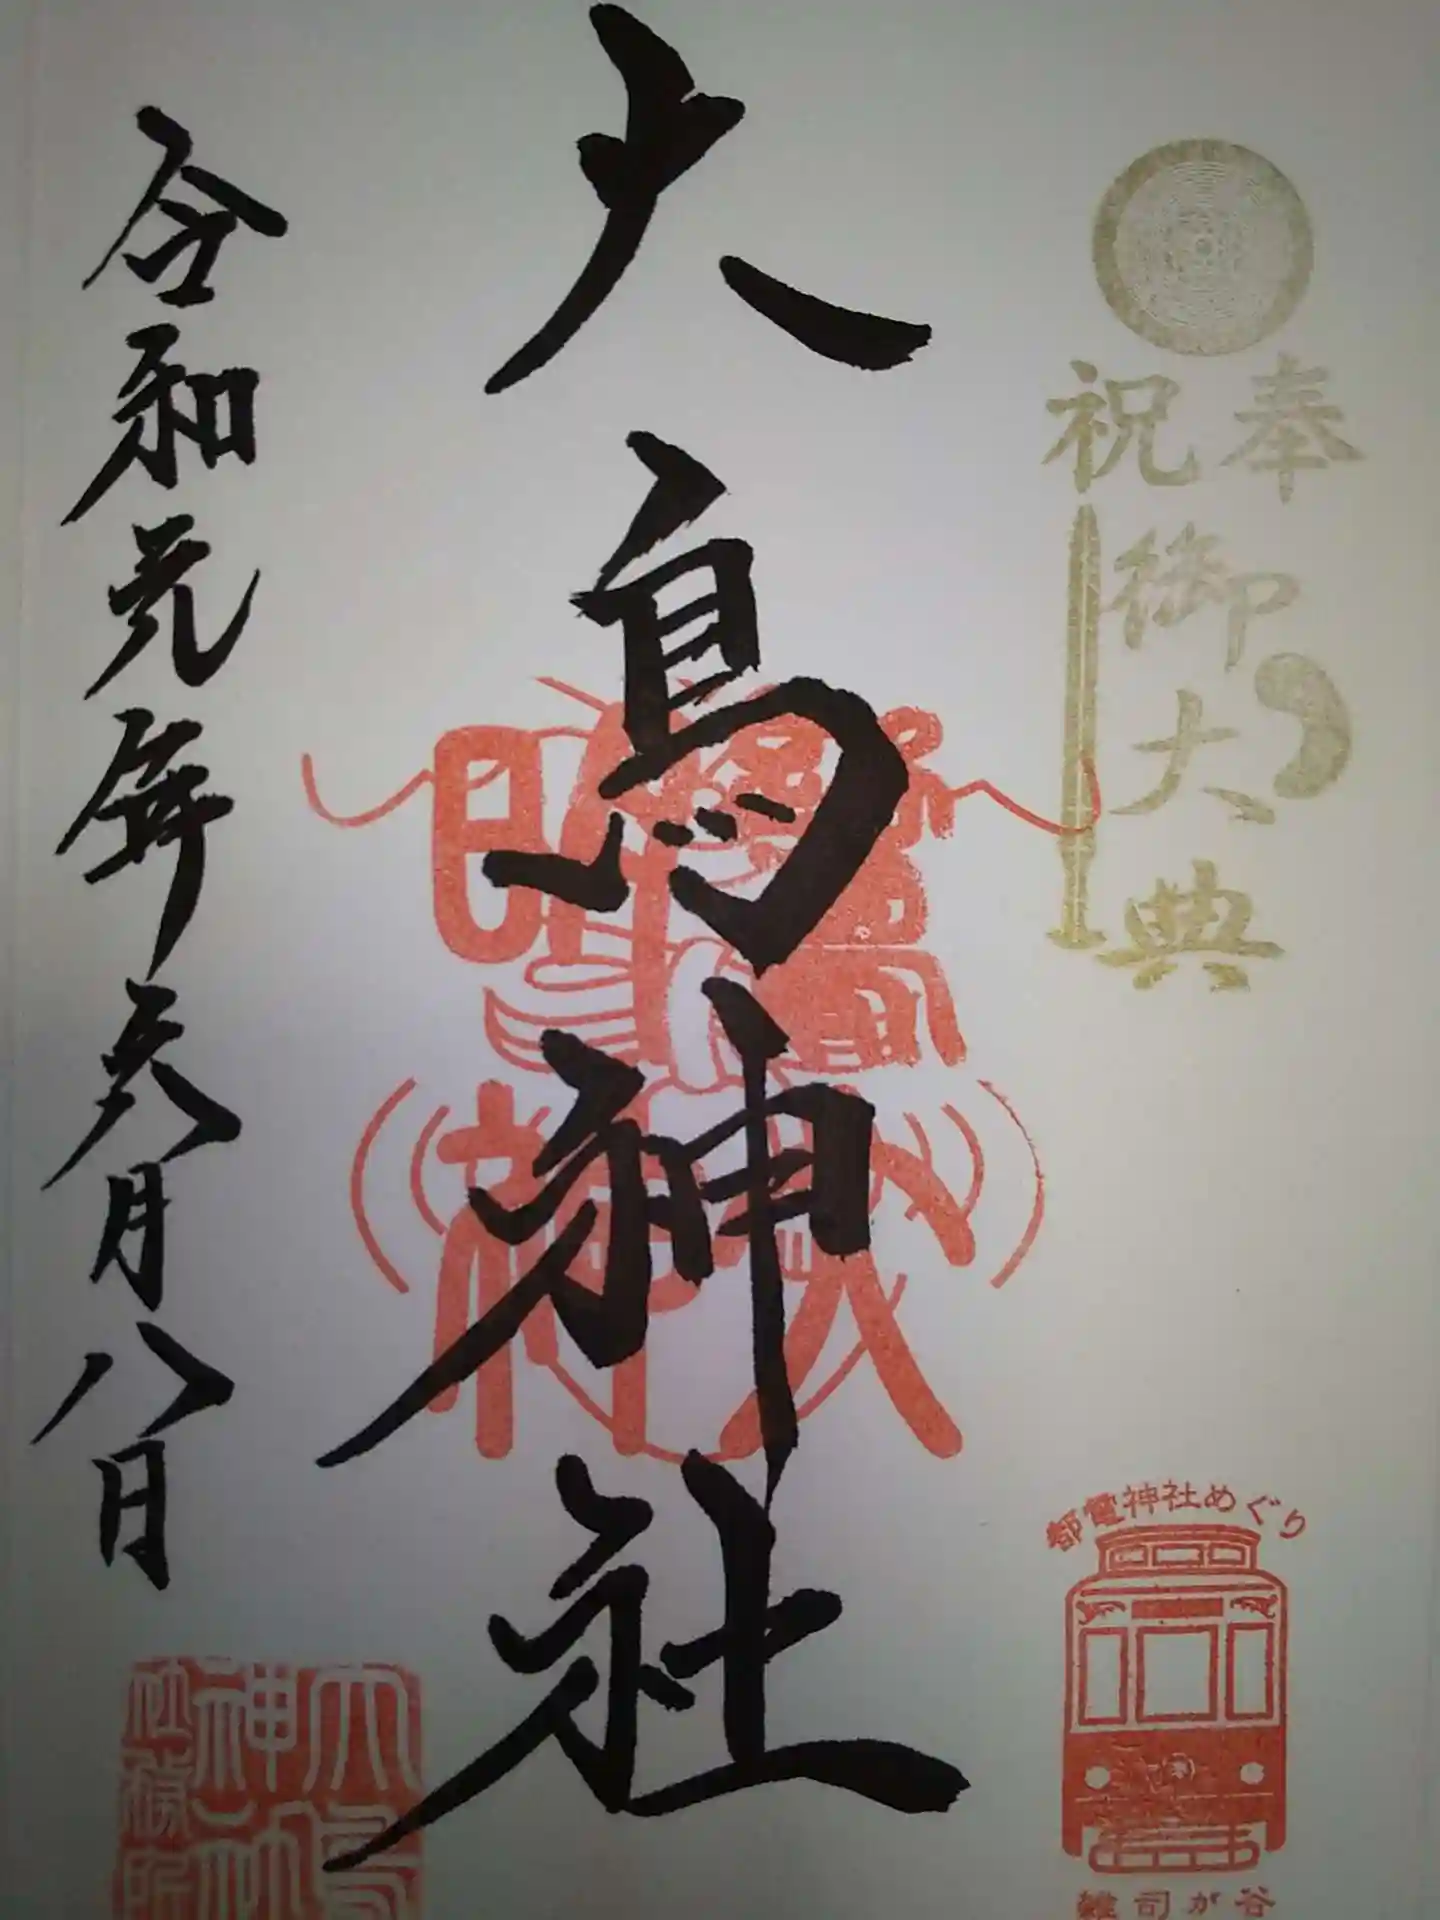 奉祝
御大典
大鳥神社
令和元年六月八日
都電神社めぐり
雑司が谷
大鳥
神社
社務所